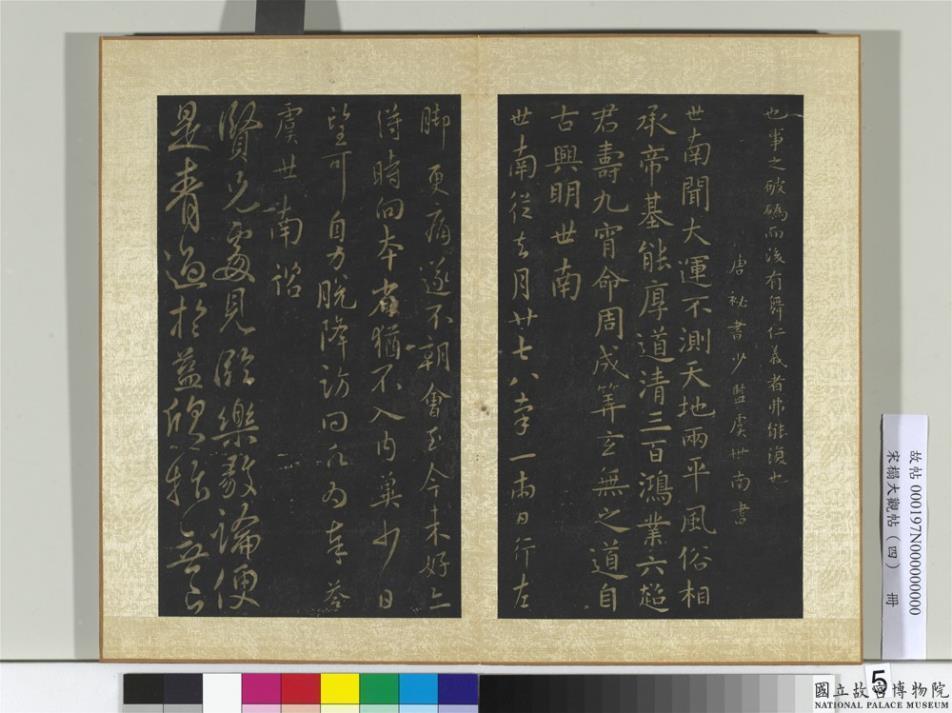 也事之破碼而後有舞仁義者弗能復也
唐秘書少監虞世南書
世南聞大運不測天地兩平風俗相
承帝基能厚道清三百鴻業六超
君壽九霄命周成筭玄無之道自
古興明世南
世南從去月廿七八率一兩日行左
脚更痛遂不朝會至今未好亦
得時向本省猶不入內冀少日
望可自力脫降訪問願為奉答
虞世南諮
賢兄處見臨樂毅論便
是青過於益欣抃無已
故帖000197N000000000
宋榻大觀帖(四) 冊
5
國立故宮博物院
NATIONAL PALACE MUSEUM